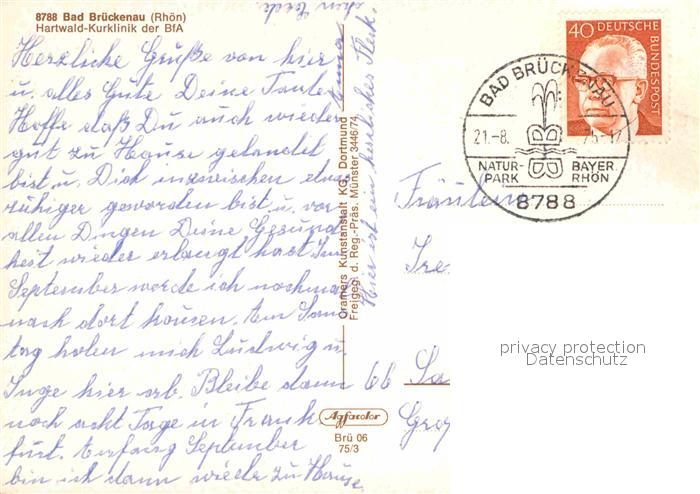 8788 Bad Brückenau (Rhön)
Hartwald-Kurklinik der BfA
Herzliche Grüße von hier
u. alles Gute Deine Tante Anna
Hoffe daß Du auch wieder
gut zu Hause gelandet
bist u. Dich inzwischen etwas
ruhiger geworden bist u. vor
allen Dingen Deine Gesund
heit wieder erlangt hast Im
September werde ich nochmal
nach dort kommen. Am Sonn
tag holen mich Ludwig u.
Inge hier ab. Bleibe dann
noch acht Tage in Frank
furt. Anfang September
bin ich dann wieder zu Hause
Hier ist ein herrliches Fleck
chen Erde
Cramers Kunstanstalt KG, Dortmund
Freigeg. d. Reg.-Präs. Münster 3446/74
Agfacolor
Brü 06
75/3
40 DEUTSCHE
BUNDESPOST
BAD BRÜCKENAU
21.-8. 75-17
NATUR-
PARK
BAYER
RHÖN
8788
Fräulein
Ire
66 Sa
privacy protection
Datenschutz